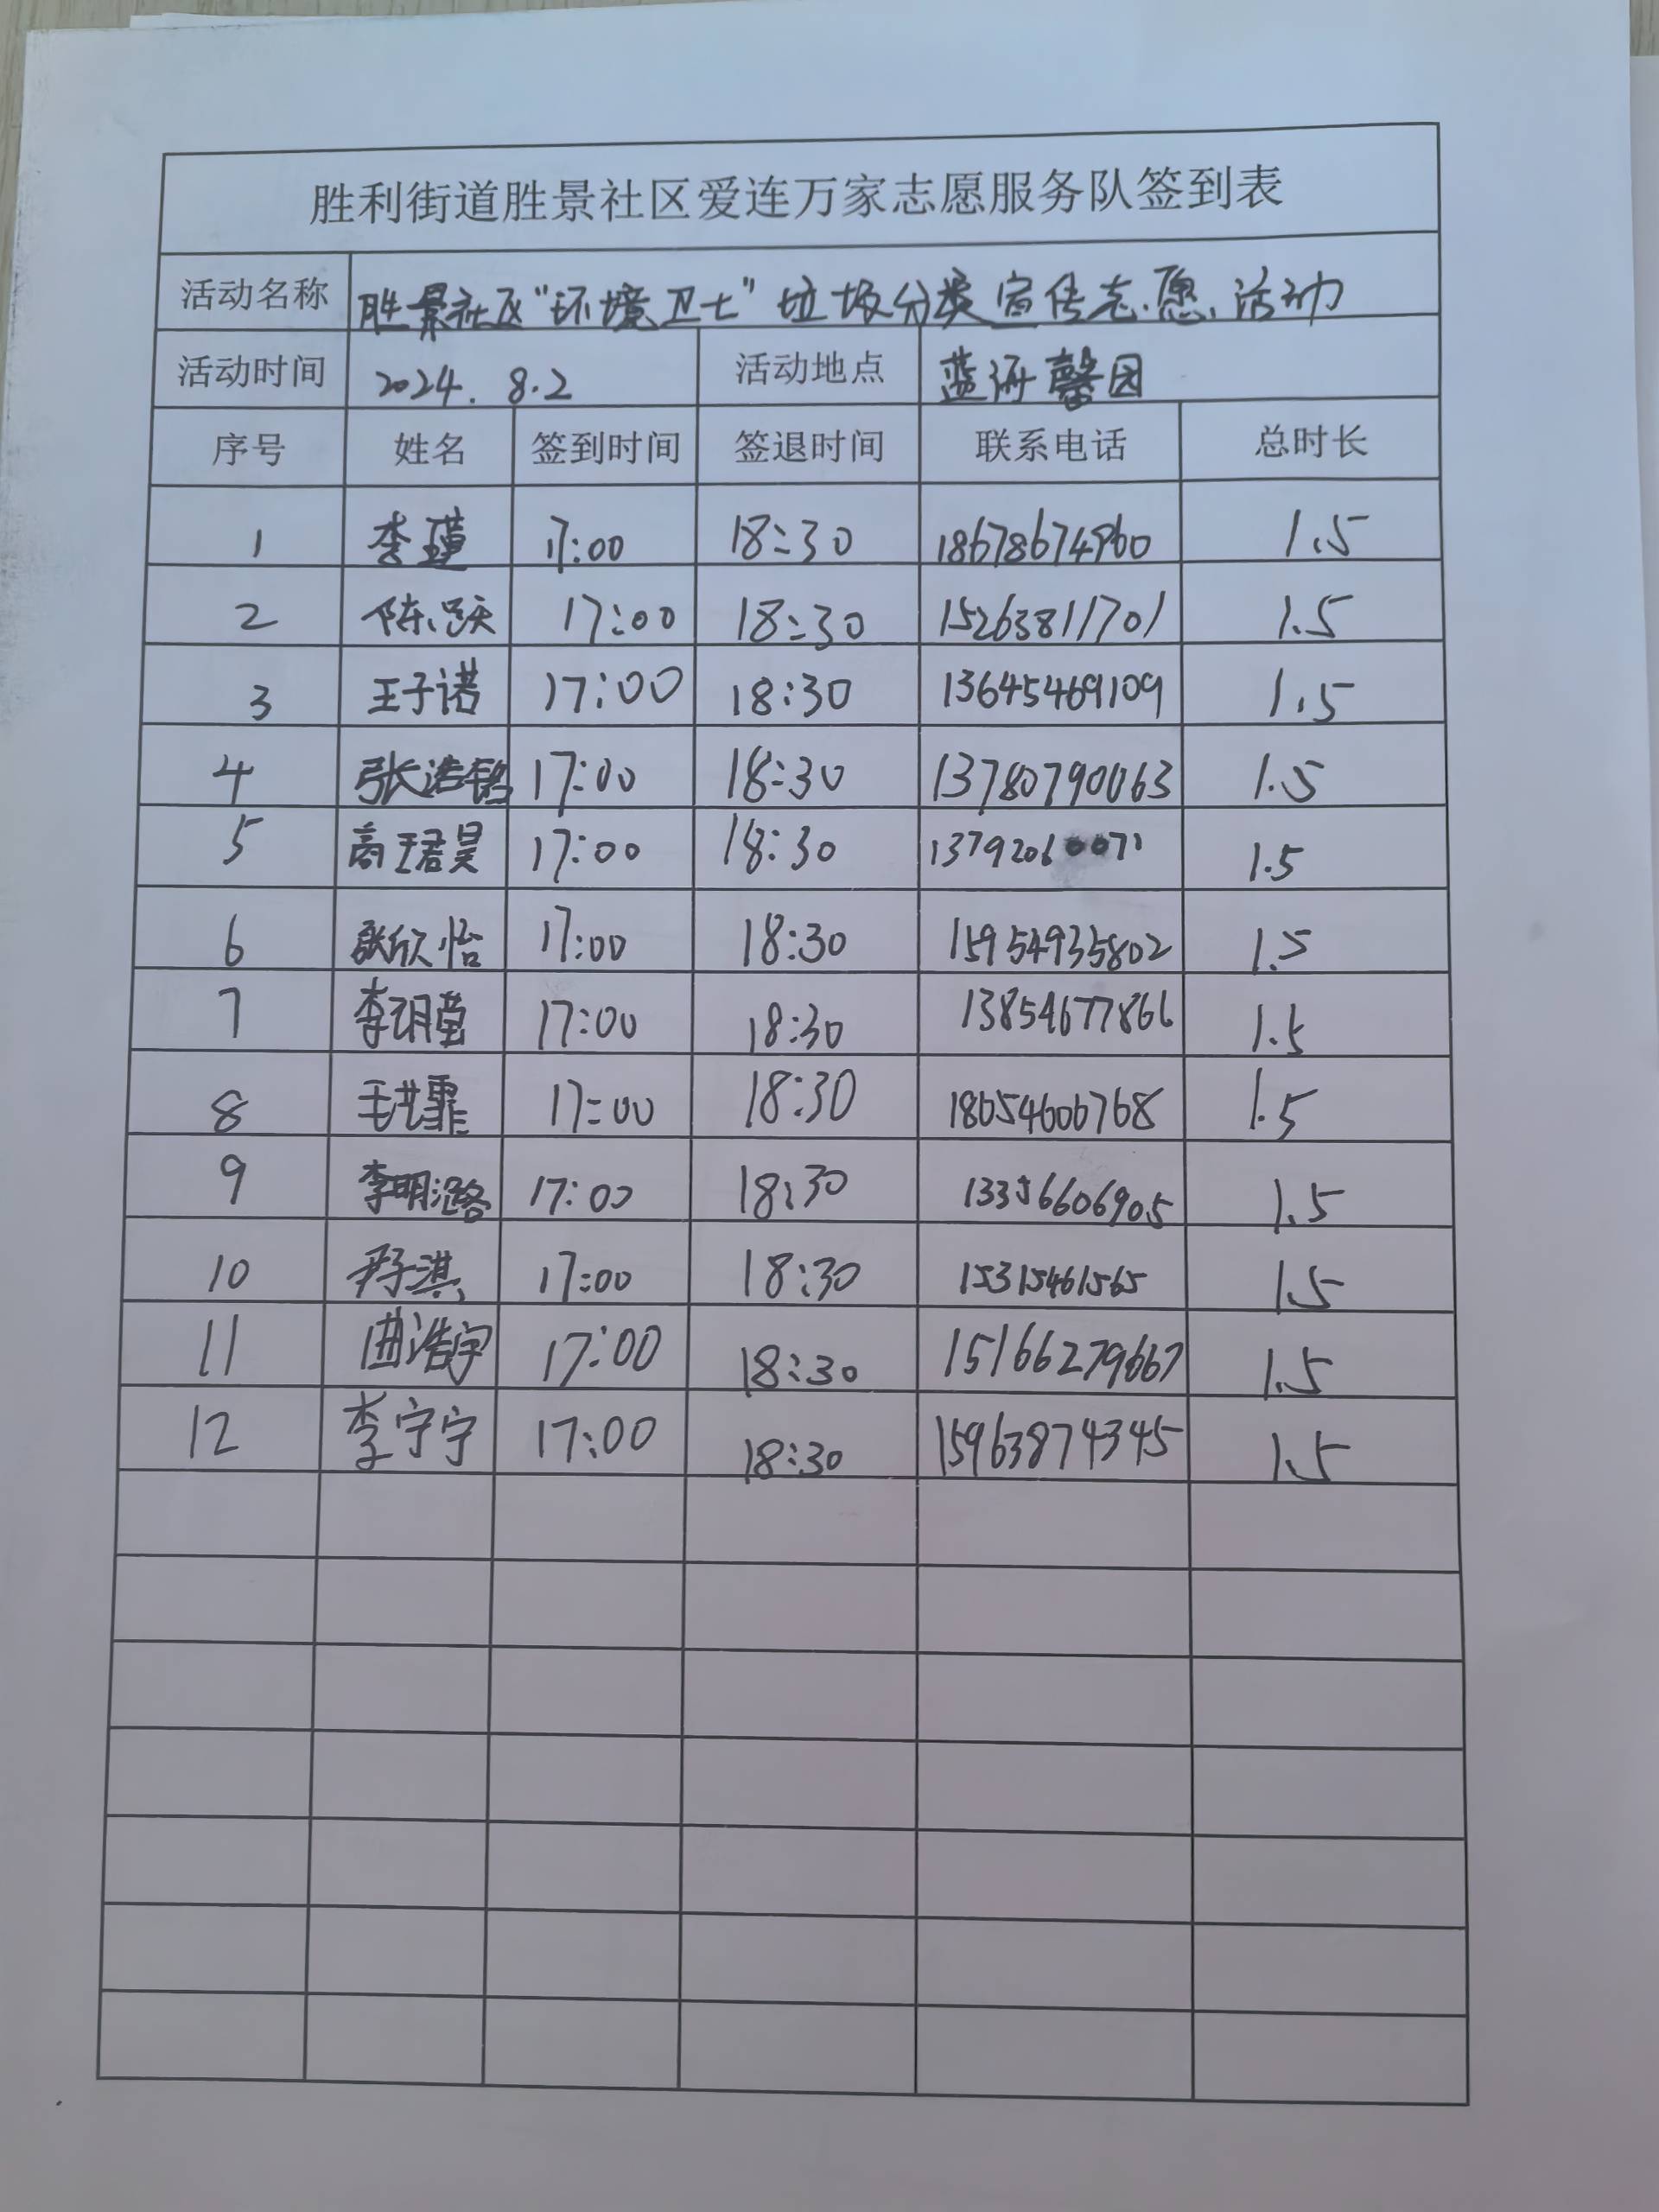 胜利街道胜景社区爱连万家志愿服务队签到表
活动名称 胜景社区“环境卫士”垃圾分类宣传志愿活动
活动时间 2024.8.2 活动地点 蓝海馨园
序号 姓名 签到时间 签退时间 联系电话 总时长
1 李瑾 17:00 18:30 18678674960 1.5
2 陈跃 17:00 18:30 15263811701 1.5
3 王子诺 17:00 18:30 13645469109 1.5
4 张浩铭 17:00 18:30 13780790063 1.5
5 高珺昊 17:00 18:30 13792060071 1.5
6 张欣怡 17:00 18:30 15954935802 1.5
7 李玥莹 17:00 18:30 13854677866 1.5
8 毛艺霏 17:00 18:30 18654600768 1.5
9 李明潞 17:00 18:30 13356606905 1.5
10 尹子淇 17:00 18:30 15315461565 1.5
11 曲浩宇 17:00 18:30 15166279667 1.5
12 李宁宁 17:00 18:30 15963874345 1.5